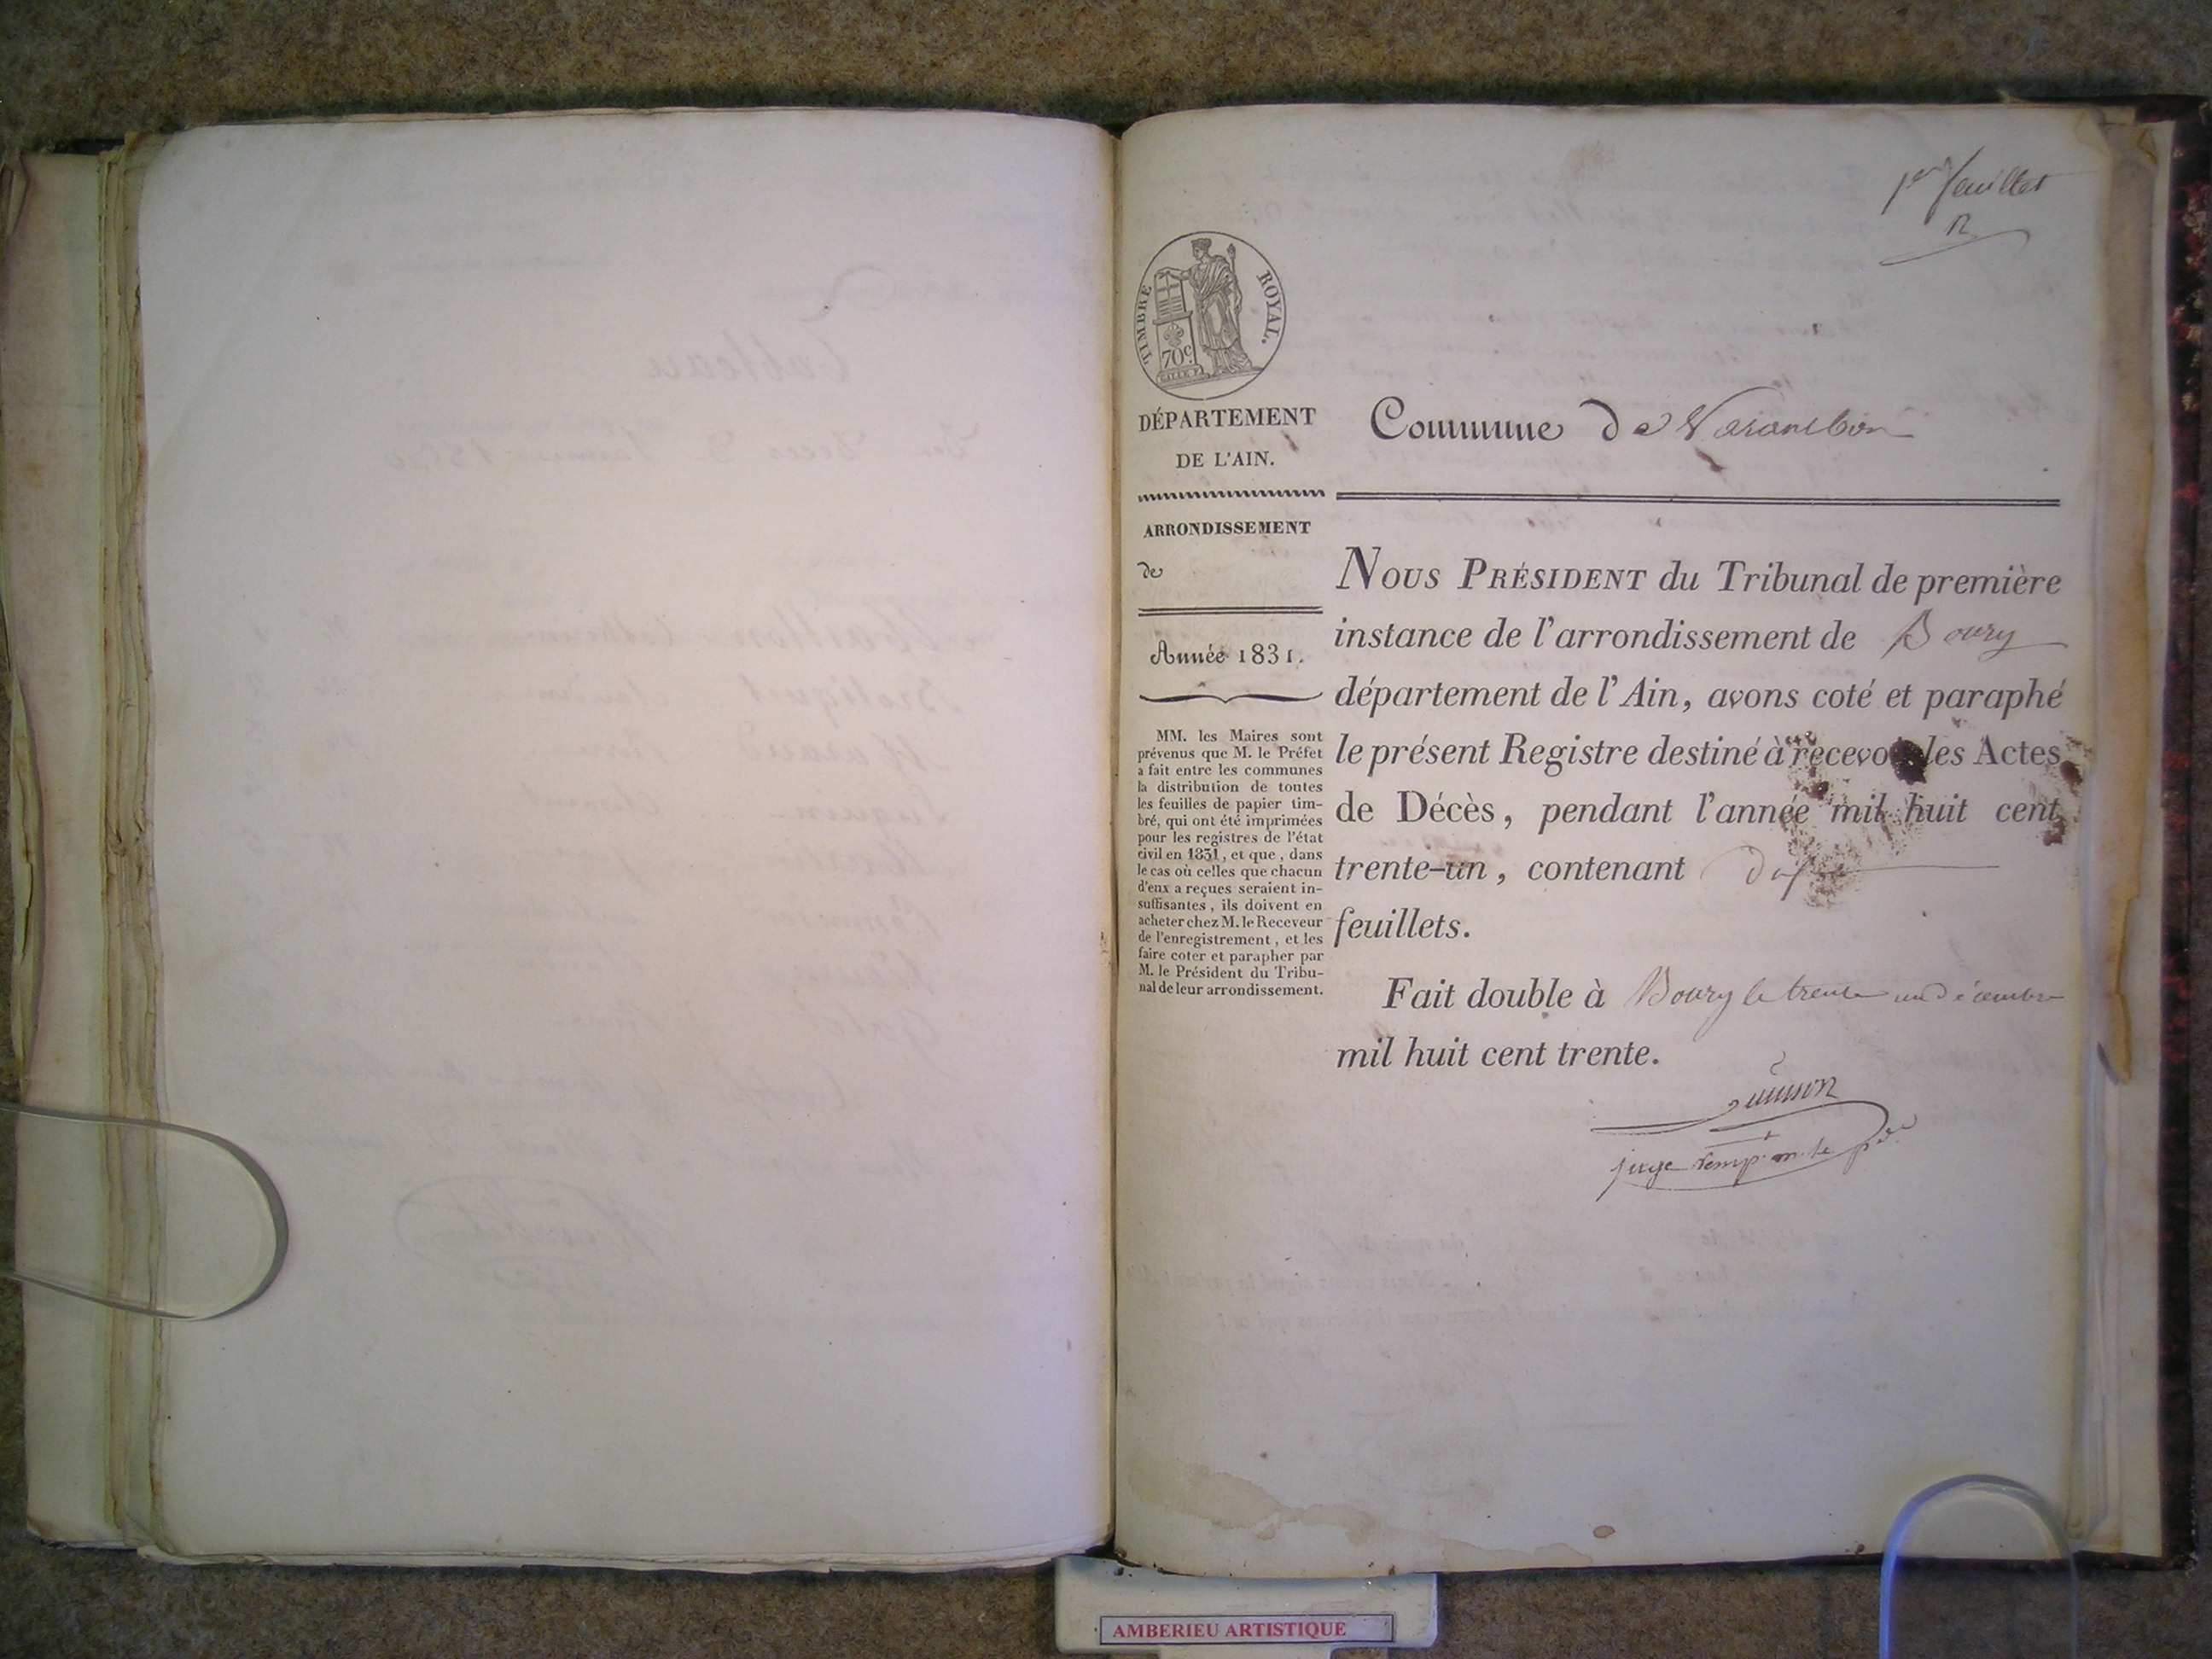 1er feuillet
TIMBRE ROYAL.
70c
DÉPARTEMENT
DE L'AIN.
Commune de Varambon
ARRONDISSEMENT
de
Année 1831.
MM. les Maires sont
prévenus que M. le Préfet
a fait entre les communes
la distribution de toutes
les feuilles de papier tim-
bré, qui ont été imprimées
pour les registres de l'état
civil en 1831, et que, dans
le cas où celles que chacun
d'eux a reçues seraient in-
suffisantes, ils doivent en
acheter chez M. le Receveur
de l'enregistrement, et les
faire coter et parapher par
M. le Président du Tribu-
nal de leur arrondissement.
NOUS PRÉSIDENT du Tribunal de première
instance de l'arrondissement de Bourg
département de l'Ain, avons coté et paraphé
le présent Registre destiné à recevoir les Actes
de Décès, pendant l'année mil huit cent
trente-un, contenant
feuillets.
Fait double à Bourg le trente un décembre
mil huit cent trente.
juge
AMBERIEU ARTISTIQUE